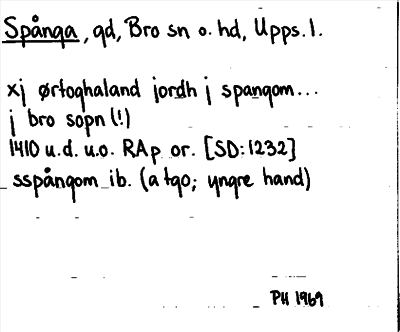 Spånga, gd, Bro sn o. hd, Upps. l.
xj ørtoghaland jordh j spangom...
j bro sopn (!)
1410 u.d. u.o. RAp or. [SD: 1232]
sspångom ib. (a tgo; yngre hand)
PH 1969